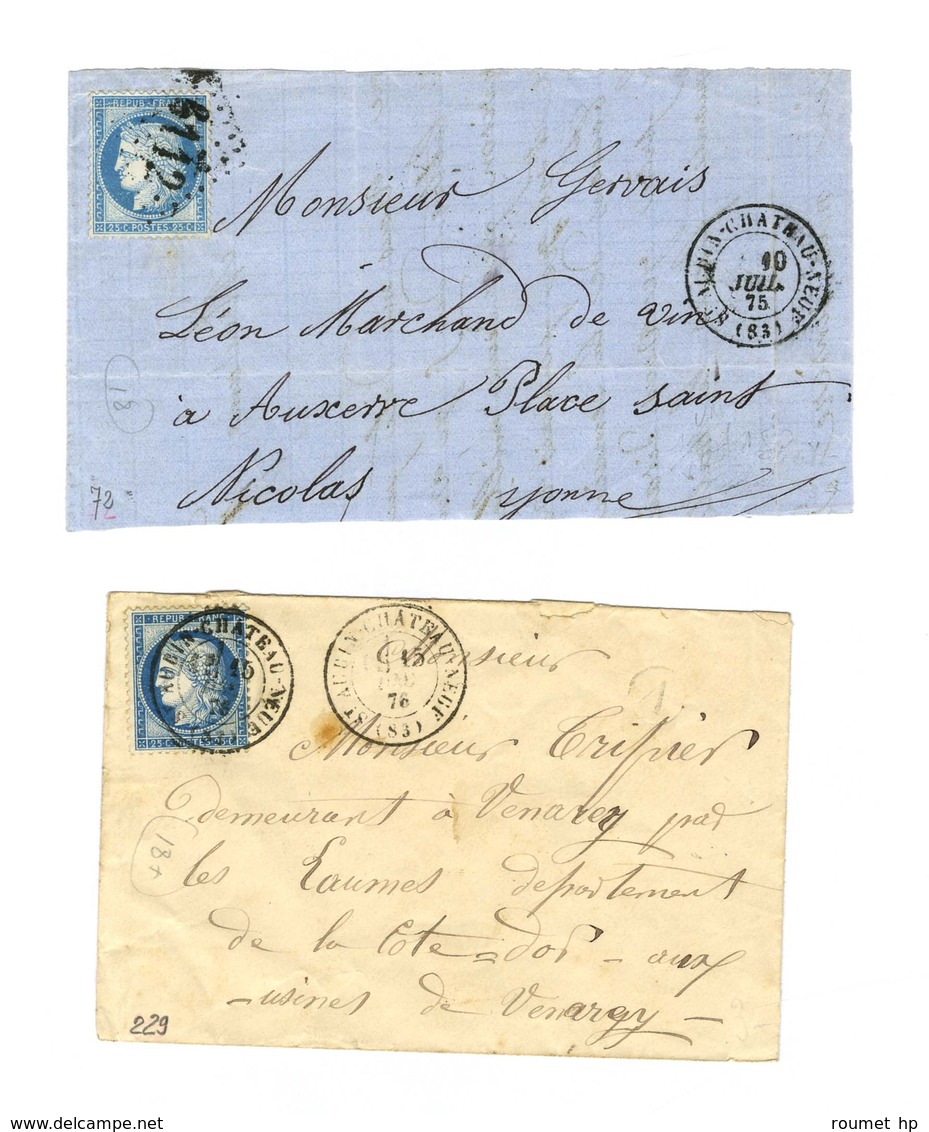 REPUB. FRANC.
6112
25 C POSTES 25 C
Monsieur Gervais
ST AUBIN-CHATEAU-NEUF
10
JUIL.
75
(83)
Léon Marchand de vin
à Auxerre Place saint
Nicolas yonne
18
72
REPUB. FRANC.
25 C POSTES 25 C
ST AUBIN-CHATEAU-NEUF
15
ST AUBIN-CHATEAU-NEUF
15
76
(83)
Monsieur
Monsieur Tripier
demeurant à Venarey par
les Laumes departement
de la Cote=dor - aux
- usines de Venargy -
18x
229
roumet hp